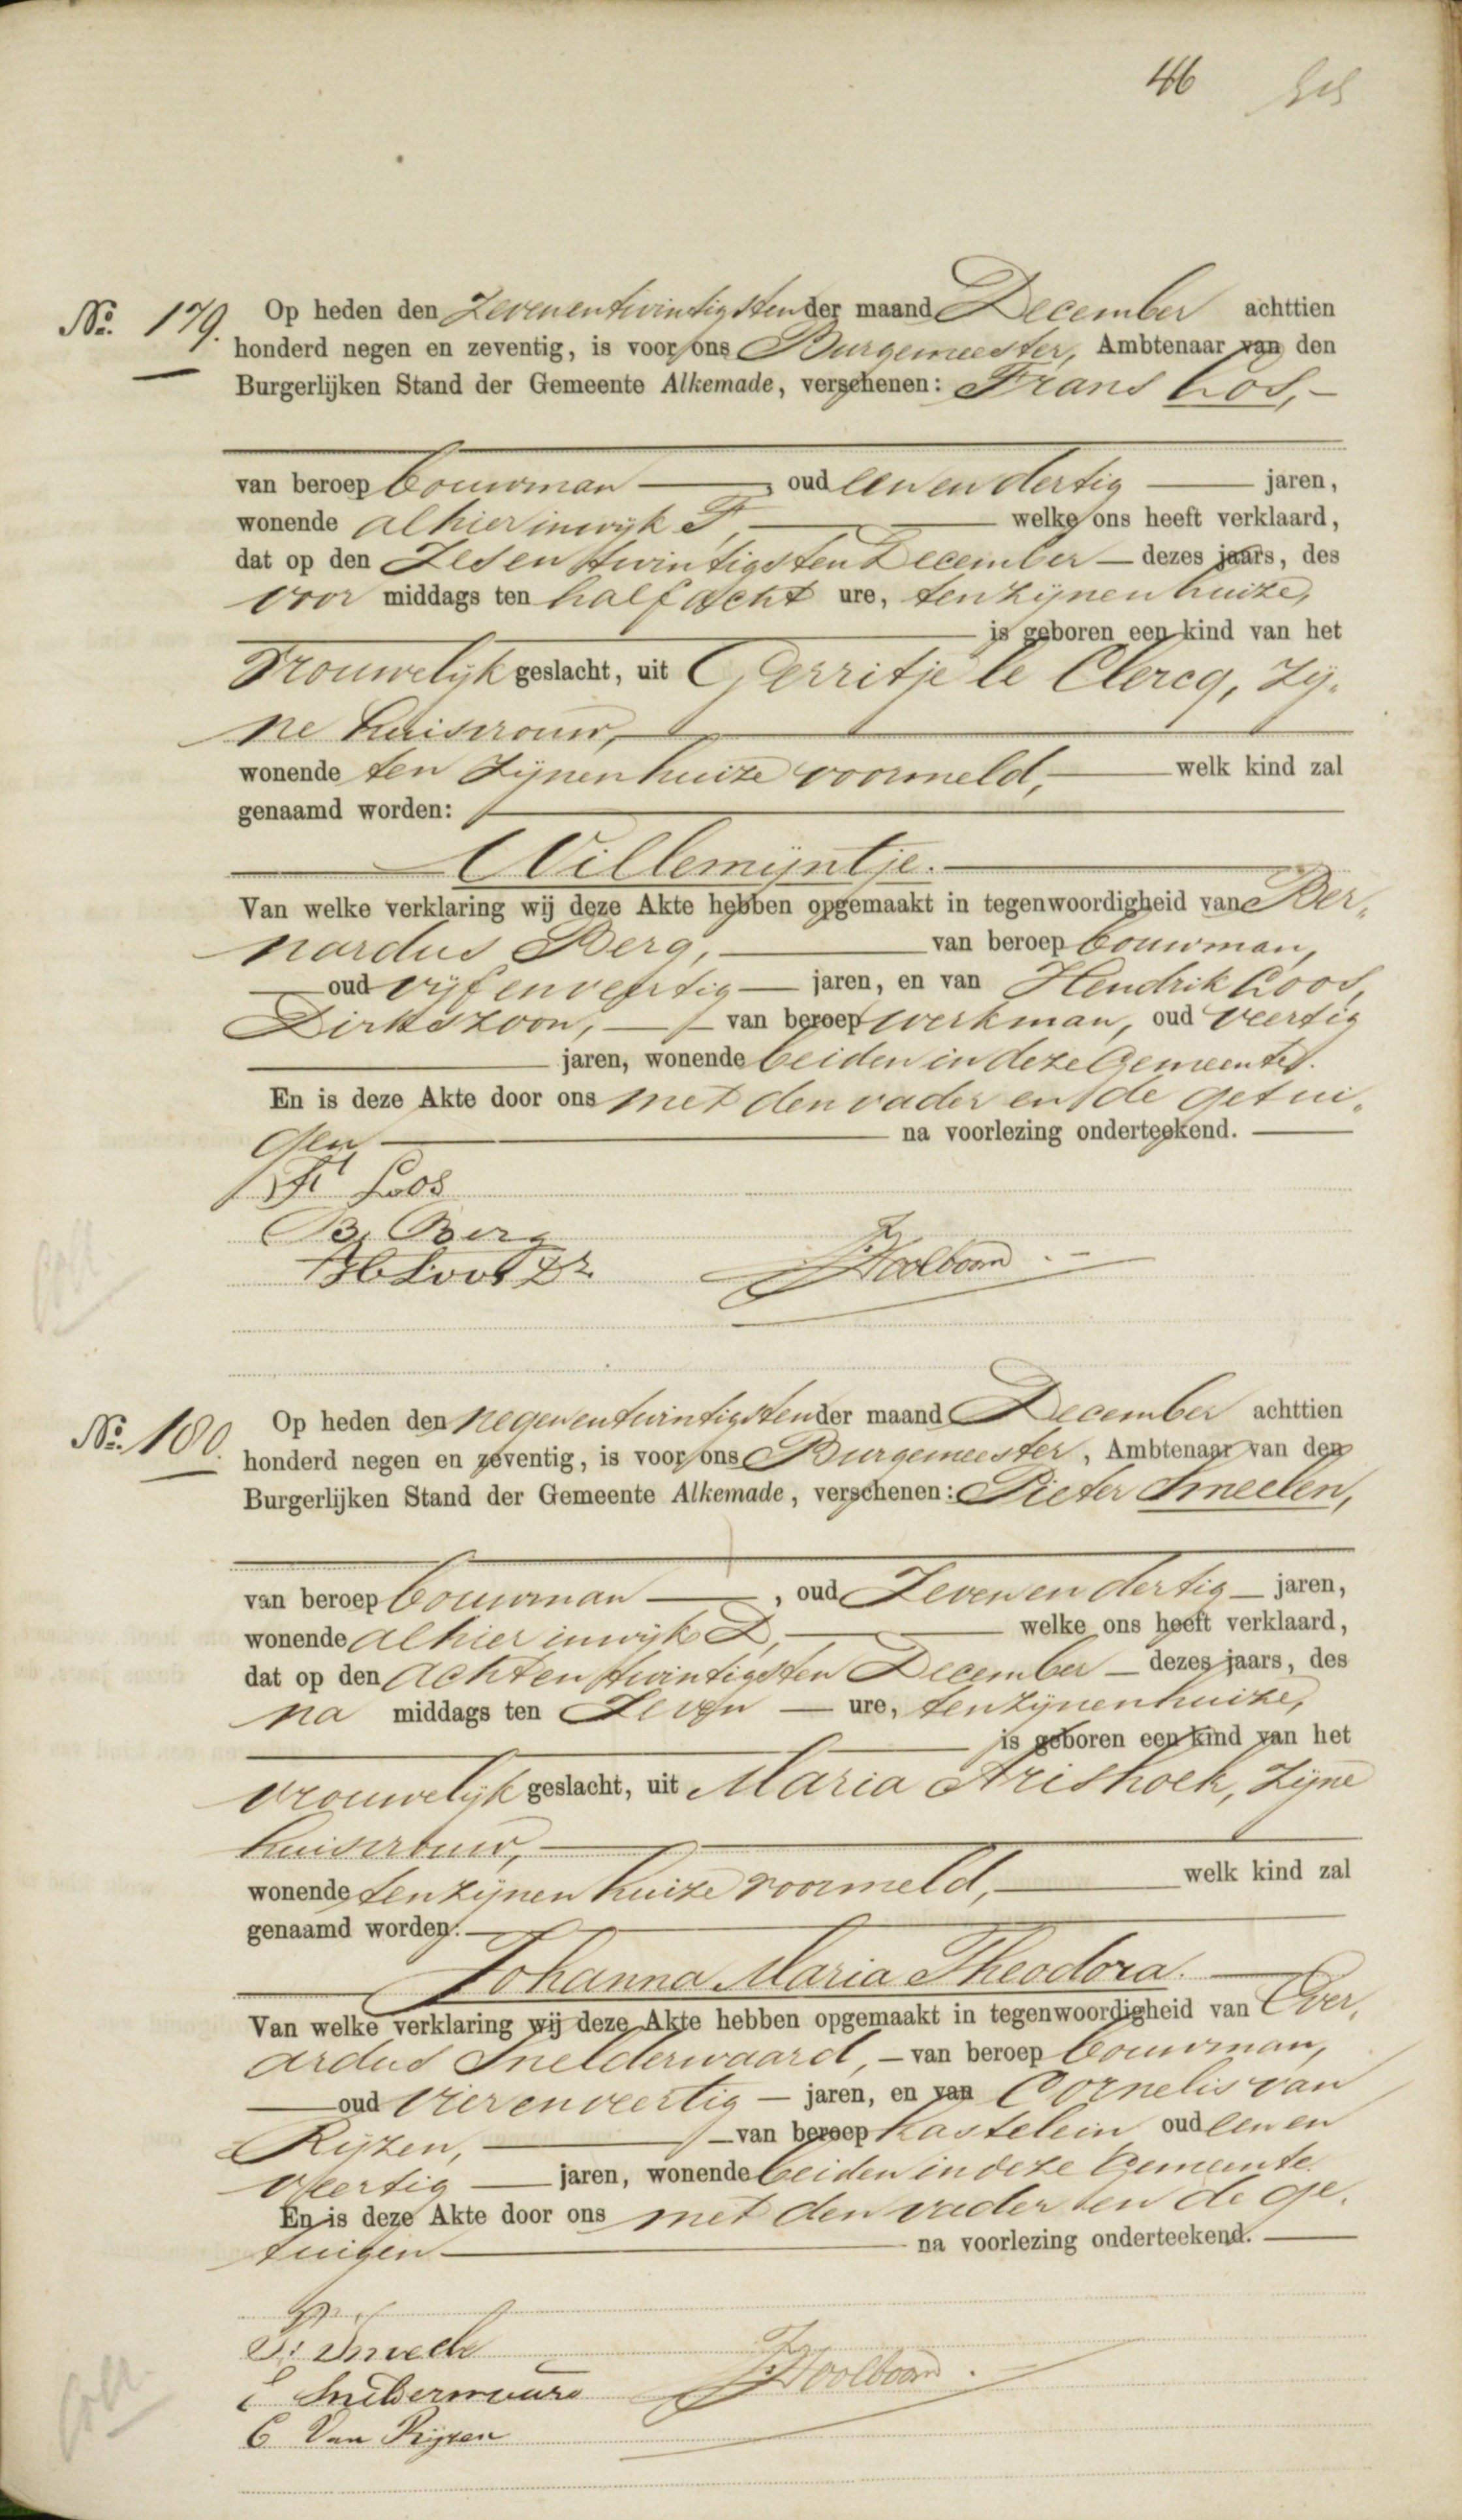 46
No. 179. Op heden den Zevenentwintigsten der maand December achttien
honderd negen en zeventig, is voor ons Burgemeester, Ambtenaar van den
Burgerlijken Stand der Gemeente Alkemade, verschenen: Frans Loos,
van beroep bouwman, oud eenendertig jaren,
wonende alhier in wijk F, welke ons heeft verklaard,
dat op den Zesentwintigsten December dezes jaars, des
voor middags ten half acht ure, ten zijnen huize,
is geboren een kind van het
Vrouwelijk geslacht, uit Gerritje le Clercq, zij-
ne huisvrouw,
wonende ten zijnen huize voormeld, welk kind zal
genaamd worden:
Willemijntje.
Van welke verklaring wij deze Akte hebben opgemaakt in tegenwoordigheid van Ber-
nardus Berg, van beroep bouwman,
oud vijfenveertig jaren, en van Hendrik Loos,
Dirkszoon, van beroep werkman, oud veertig
jaren, wonende beiden in deze Gemeente.
En is deze Akte door ons met den vader en de getui-
gen na voorlezing onderteekend.
Fr Loos
B. Berg
H Loos Dz
Koolboom
No. 180. Op heden den negenentwintigsten der maand December achttien
honderd negen en zeventig, is voor ons Burgemeester, Ambtenaar van den
Burgerlijken Stand der Gemeente Alkemade, verschenen: Pieter Smeelen,
van beroep bouwman, oud Zevenendertig jaren,
wonende alhier in wijk D, welke ons heeft verklaard,
dat op den Achtentwintigsten December dezes jaars, des
na middags ten Zeven ure, ten zijnen huize,
is geboren een kind van het
vrouwelijk geslacht, uit Maria Arishoek, zijne
huisvrouw,
wonende ten zijnen huize voormeld, welk kind zal
genaamd worden:
Johanna Maria Theodora.
Van welke verklaring wij deze Akte hebben opgemaakt in tegenwoordigheid van Ever-
ardus Snelderwaard, van beroep bouwman,
oud vierenveertig jaren, en van Cornelis van
Rijzen, van beroep kastelein oud eenen
veertig jaren, wonende beiden in deze Gemeente.
En is deze Akte door ons met den vader en de ge-
tuigen na voorlezing onderteekend.
P. Smeele
E Snelderwaard
Koolboom
C Van Rijzen